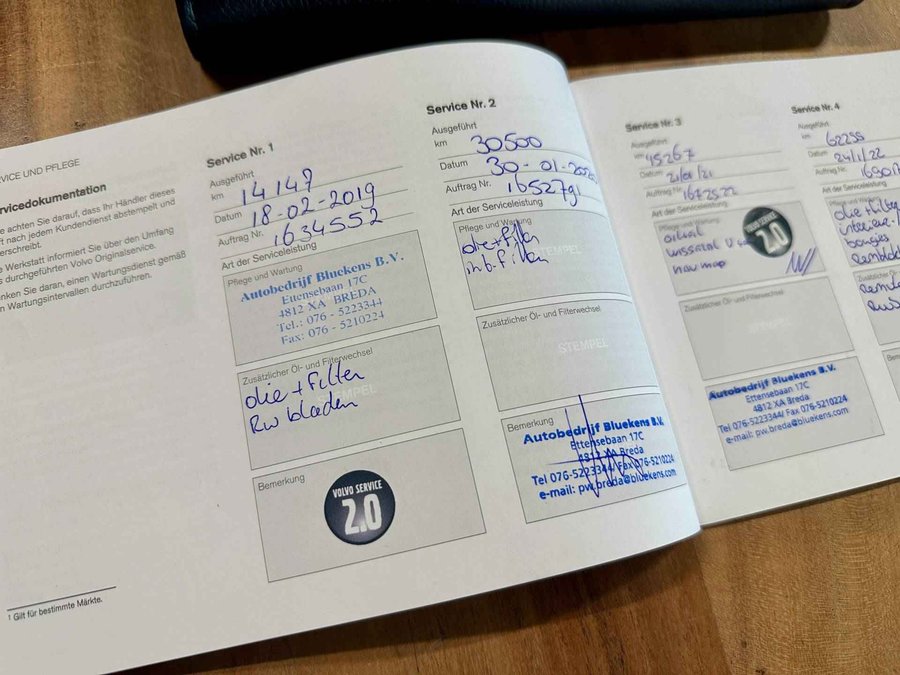 VICE UND PFLEGE
rvicedokumentation
e achten Sie darauf, dass Ihr Händler dieses
ft nach jedem Kundendienst abstempelt und
erschreibt.
e Werkstatt informiert Sie über den Umfang
s durchgeführten Volvo Originalservice.
nken Sie daran, einen Wartungsdienst gemäß
n Wartungsintervallen durchzuführen.
1 Gilt für bestimmte Märkte.
Service Nr. 1
Ausgeführt
km 14147
Datum 18-02-2019
Auftrag Nr. 1634552
Art der Serviceleistung
Pflege und Wartung
Autobedrijf Bluekens B.V.
Ettensebaan 17C
4812 XA BREDA
Tel.: 076 - 5223344
Fax: 076 - 5210224
Zusätzlicher Öl- und Filterwechsel
STEMPEL
olie + filter
Rw bladen
Bemerkung
VOLVO SERVICE
2.0
Service Nr. 2
Ausgeführt
km 30500
Datum 30-01-2020
Auftrag Nr. 1652791
Art der Serviceleistung
Pflege und Wartung
STEMPEL
olie + filter
int. filter
Zusätzlicher Öl- und Filterwechsel
STEMPEL
Bemerkung
Autobedrijf Bluekens B.V.
Ettensebaan 17C
4812 XA Breda
Tel 076-5223344/ Fax 076-5210224
e-mail: pw.breda@bluekens.com
Service Nr. 3
Ausgeführt
km 45267
Datum 21/01/21
Auftrag Nr. 1672522
Art der Serviceleistung
Pflege und Wartung
VOLVO SERVICE
2.0
Zusätzlicher Öl- und Filterwechsel
STEMPEL
Autobedrijf Bluekens B.V.
Ettensebaan 17C
4812 XA Breda
Tel 076-5223344/ Fax 076-5210224
e-mail: pw.breda@bluekens.com
Service Nr. 4
Ausgeführt
km 62255
Datum 24/1/22
Auftrag Nr.
Art der Serviceleistung
Pflege und Wartung
olie + filter
interieur
bougies
Zusätzlicher Öl-